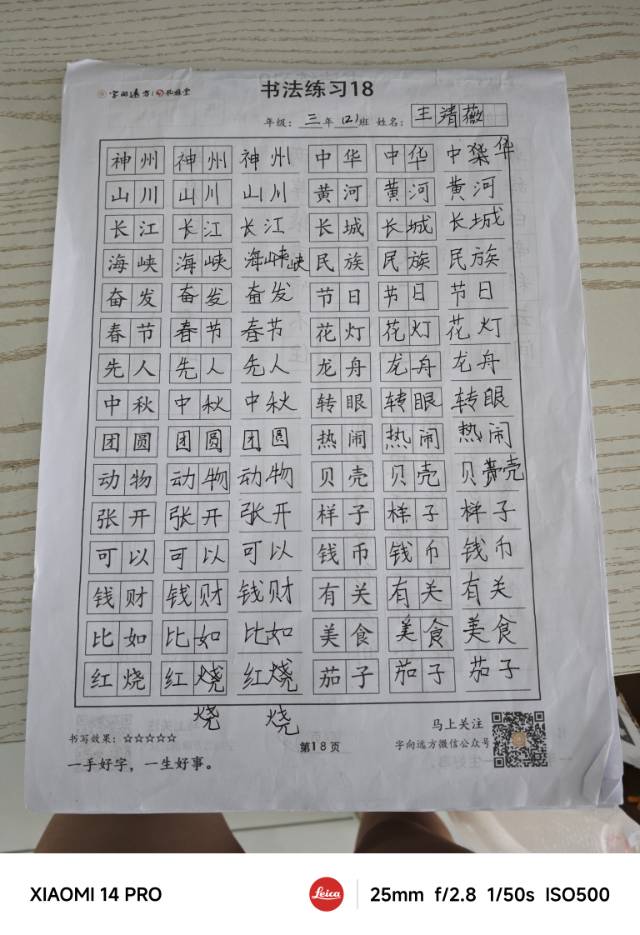 字向远方
书法练习18
年级：三年(2)班 姓名：王清薇
神州 神州 神州 中华 中华 中华
山川 山川 山川 黄河 黄河 黄河
长江 长江 长江 长城 长城 长城
海峡 海峡 海峡峡 民族 民族 民族
奋发 奋发 奋发 节日 节日 节日
春节 春节 春节 花灯 花灯 花灯
先人 先人 先人 龙舟 龙舟 龙舟
中秋 中秋 中秋 转眼 转眼 转眼
团圆 团圆 团圆 热闹 热闹 热闹
动物 动物 动物 贝壳 贝壳 贝壳
张开 张开 张开 样子 样子 样子
可以 可以 可以 钱币 钱币 钱币
钱财 钱财 钱财 有关 有关 有关
比如 比如 比如 美食 美食 美食
红烧 红烧 红烧 茄子 茄子 茄子
烧 烧
书写效果：☆☆☆☆☆
一手好字，一生好事。
第18页
马上关注
字向远方微信公众号
XIAOMI 14 PRO
Leica
25mm f/2.8 1/50s ISO500